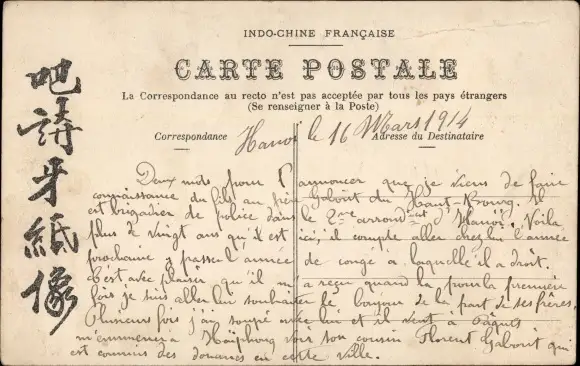 INDO-CHINE FRANÇAISE
CARTE POSTALE
La Correspondance au recto n'est pas acceptée par tous les pays étrangers
(Se renseigner à la Poste)
Correspondance
Adresse du Destinataire
Hanoi le 16 Mars 1914
Deux mots pour t'annoncer que je viens de faire
connaissance du fils au père Gaborit du Haut-Bourg. Il
est brigadier de police dans le 2me arrondt d'Hanoï. Voila
plus de vingt ans qu'il est ici, il compte aller chez lui l'année
prochaine y passer l'année de congé a laquelle il a droit.
C'est avec plaisir qu'il m'a reçu quand la pour la première
fois je suis aller lui souhaiter le bonjour de la part de ses frères.
Plusieurs fois j'ai soupé avec lui et il veut a Pâques
m'emmener a Haïphong voir son cousin Florent Gaborit qui
est commis des douanes en cette ville.
吧
請
牙
紙
像